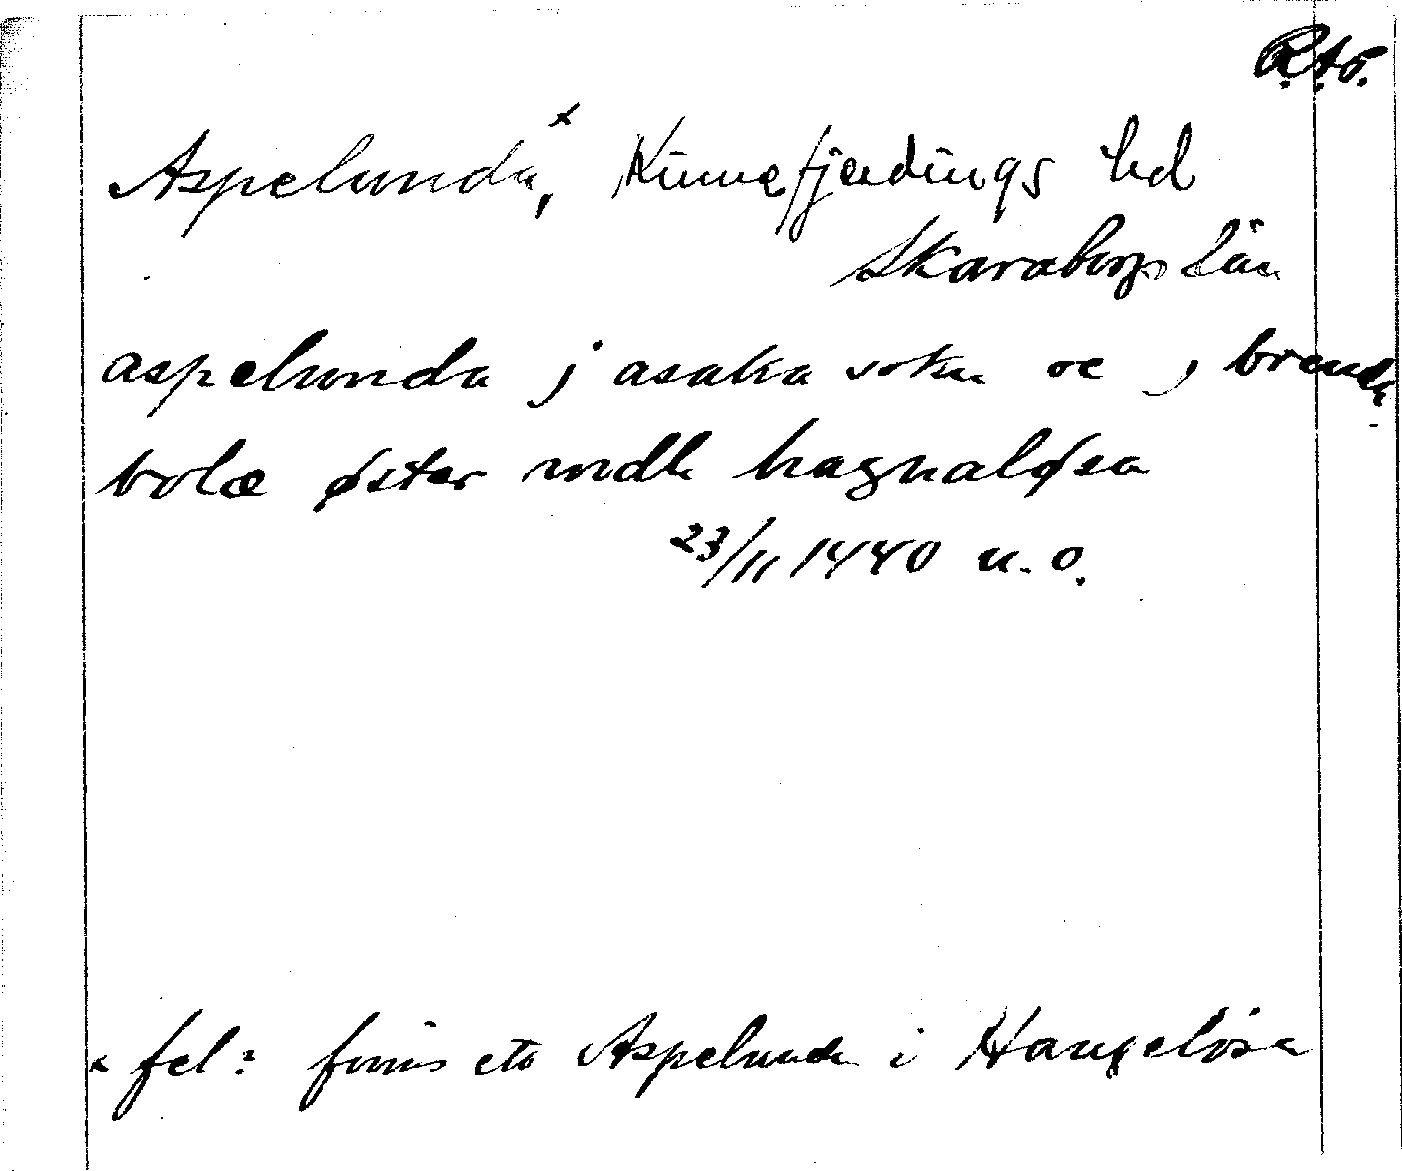 R.A.Ö.
Aspelunda,x Kinnefjerdings hd
Skaraborgs län
aspelunda j asaka sokn oc j brenda
bolæ øster medh hagnaløsa
23/11 1440 u. o.
x fel? finns ett Aspelunda i Hangelösa